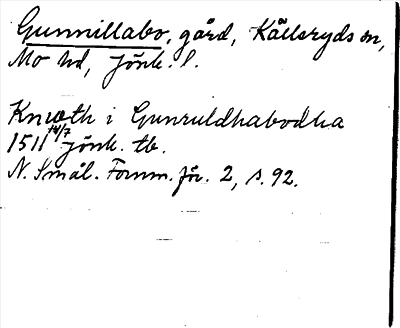 Gunnillabo, gård, Källeryds sn,
Mo hd, Jönk. l.
Knwth i Gunruldhabodha
1511 14/7 Jönk. tb.
N. Smål. Fornm. för. 2, s. 92.